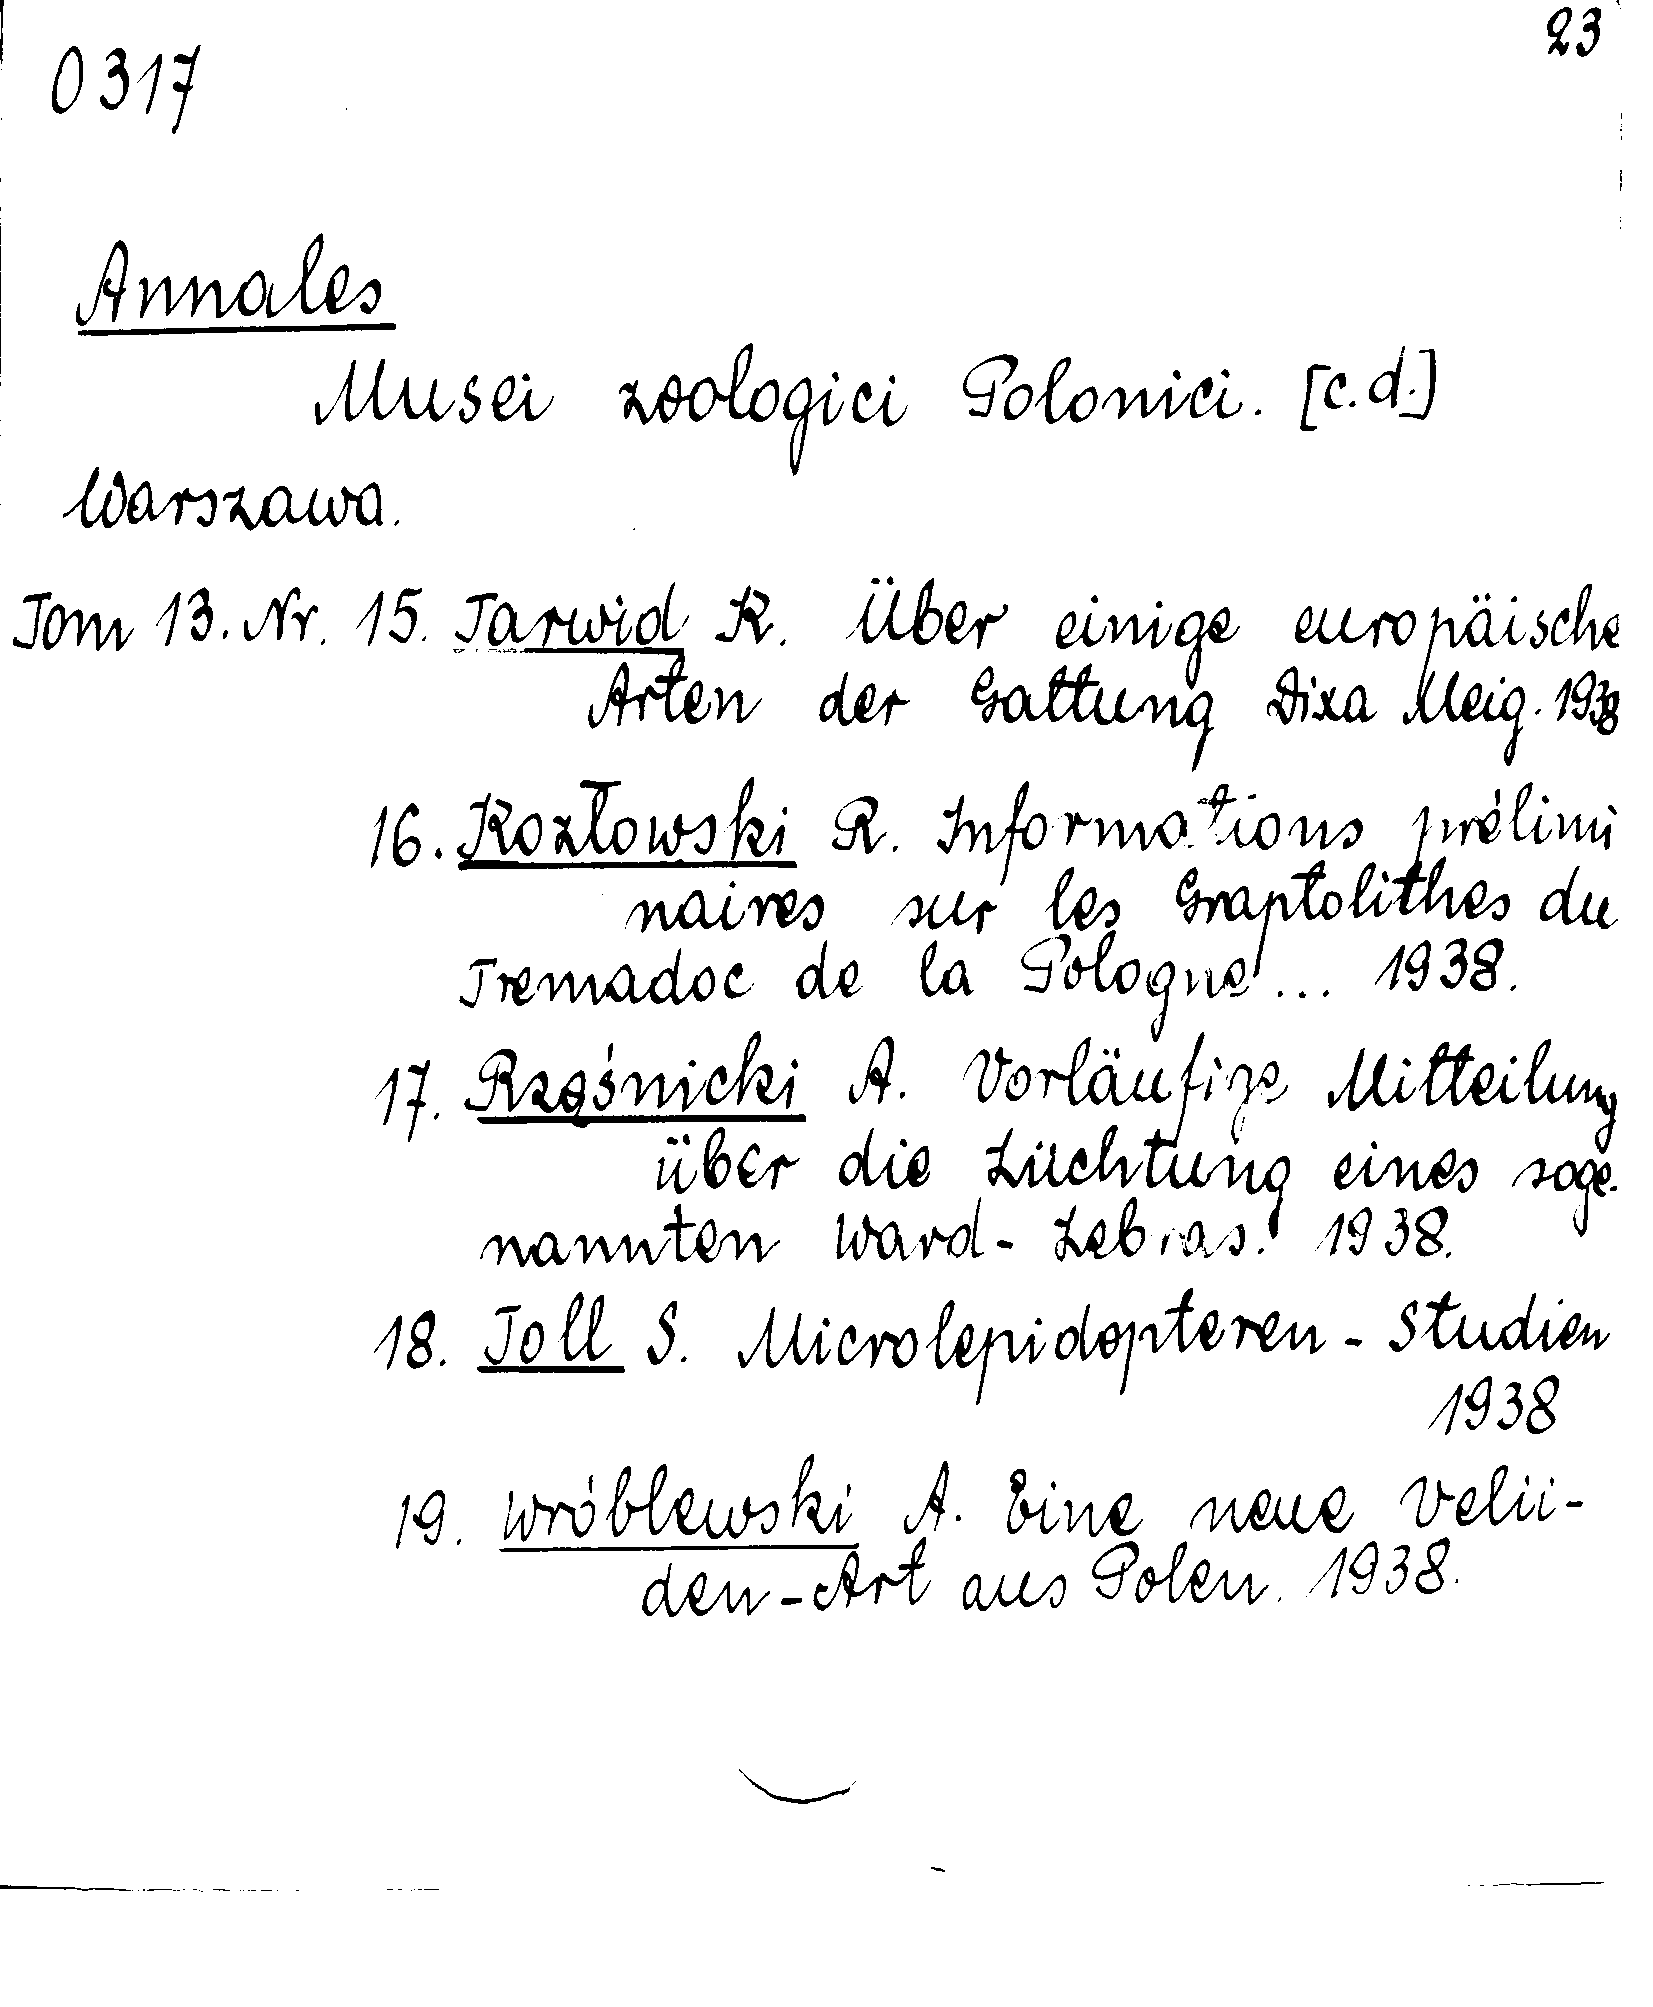 23
0317
Annales
Musei zoologici Polonici. [c.d.]
Warszawa.
Tom 13. Nr. 15. Tarwid K. Über einige europäische
Arten der Gattung Dixa Meig. 1938
16. Kozłowski R. Informations prélimi
naires sur les Graptolithes du
Tremadoc de la Pologne... 1938.
17. Rzęśnicki A. Vorläufige Mitteilung
über die Züchtung eines soge-
nannten Ward-Zebras. 1938.
18. Toll S. Microlepidopteren-Studien
1938
19. Wróblewski A. Eine neue Velii-
den-Art aus Polen. 1938.